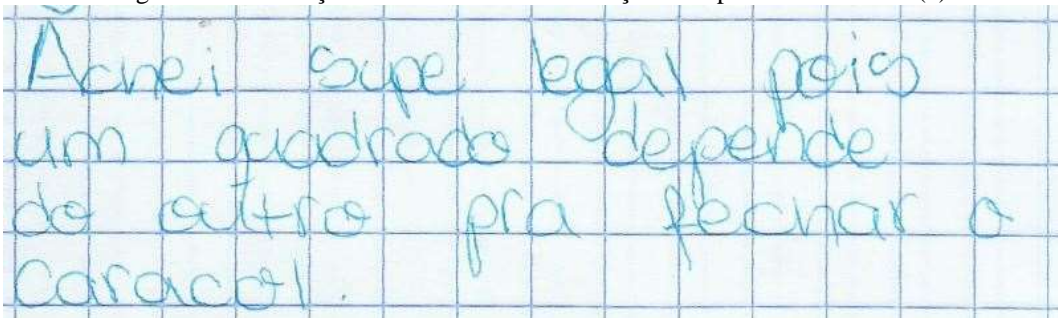 Achei supe legal pois
um quadrado depende
do outro pra fechar o
caracol.